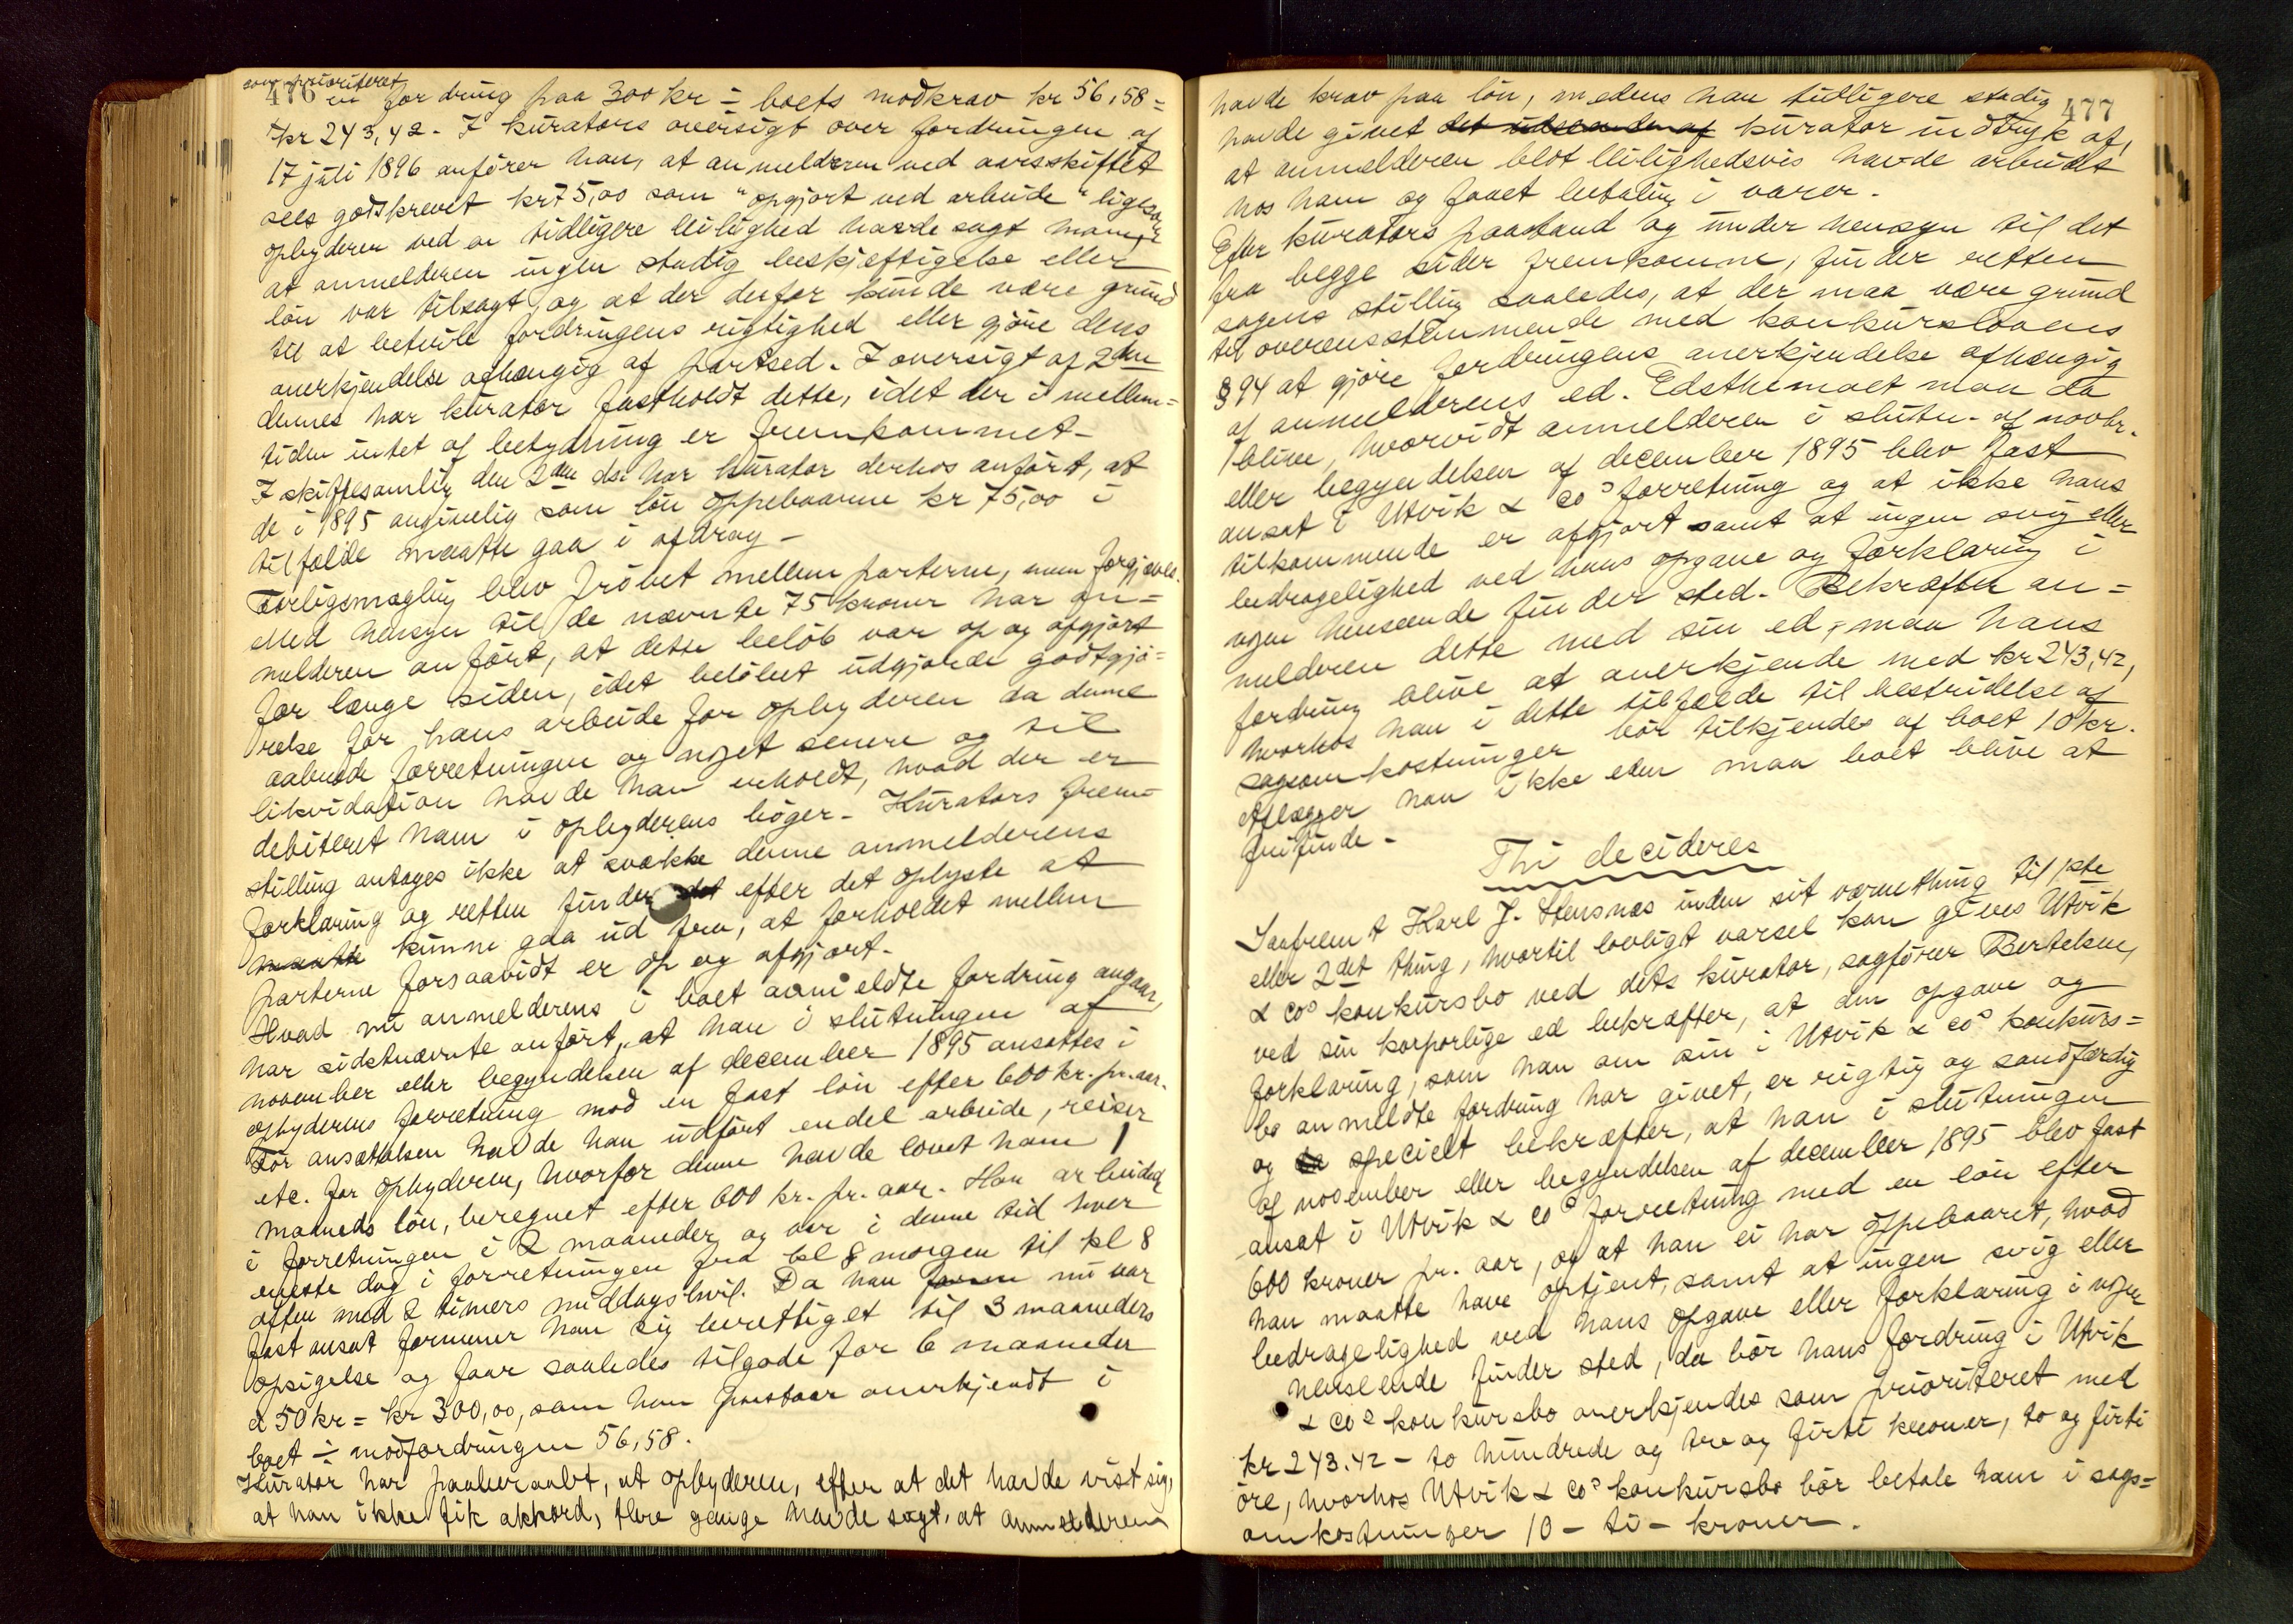 som prioriteret
476 en fordring paa 300 kr ÷ boets modkrav kr 56,58 =
kr 243,42 - I kurators oversigt over fordringen af
17 juli 1896 anfører han, at anmelderen ved aarsskiftet
sees godskrevet kr 75,00 som "opgjort ved arbeide" ligesom
opbyderen ved en tidligere leilighed havde sagt ham,
at anmelderen ingen stadig beskjæftigelse eller
løn var tilsagt, og at der derfor kunde være grund
til at betvile fordringens rigtighed eller gjøre dens
anerkjendelse afhængig af partsed. I oversigt af 2den
dennes har kurator fastholdt dette, idet der i mellem=
tiden intet af betydning er fremkommet -
I skiftesamling den 2den ds. har kurator derhos anført, at
de i 1895 angivelig som løn oppebaarne kr 75,00 i
tilfælde maatte gaa i afdrag -
Forligsmægling blev prøvet mellem parterne, men forgjæves.
Med hensyn til de nævnte 75 kroner har an=
melderen anført, at dette beløb var op og afgjort
for længe siden, idet beløbet udgjorde godtgjø=
relse for hans arbeide for opbyderen da denne
aabnede forretningen og noget senere og til
likvidation havde han erholdt, hvad der er
debiteret ham i opbyderens bøger - Kurators frem=
stilling antages ikke at svække denne anmelderens
forklaring og retten finder det efter det oplyste at
maatte kunne gaa ud fra, at forholdet mellem
parterne forsaavidt er op og afgjort -
Hvad nu anmelderens i boet anmeldte fordring angaar,
har sidstnævnte anført, at han i slutningen af
november eller begyndelsen af december 1895 ansattes i
opbyderens forretning mod en fast løn efter 600 kr. pr. aar.
Før ansættelsen havde han udført endel arbeide, reiser
etc. for opbyderen, hvorfor denne havde lovet ham 1
maaneds løn, beregnet efter 600 kr. pr. aar. Han arbeidede
i forretningen i 2 maaneder, og var i denne tid hver
eneste dag i forretningen fra kl 8 morgen til kl 8
aften med 2 timers middagshvil. Da han nu var
fast ansat formener han sig berettiget til 3 maaneders
opsigelse og faar saaledes tilgode for 6 maaneder
a 50 kr = kr 300,00, som han paastaar anerkjendt i
boet ÷ modfordringen 56,58.
Kurator har paaberaabt, at opbyderen, efter at det havde vist sig,
at han ikke fik akkord, flere gange havde sagt, at anmelderen
477
havde krav paa løn, medens han tidligere stadig
havde givet det udseende af kurator indtryk af,
at anmelderen blot leilighedsvis havde arbeidet
hos ham og faaet betaling i varer.
Efter kurators paastand og under hensyn til det
fra begge sider fremkomne, finder retten
sagens stilling saaledes, at der maa være grund
til overensstemmende med konkurslovens
§ 94 at gjøre fordringens anerkjendelse afhængig
af anmelderens ed. Edsthemaet maa da
blive, hvorvidt anmelderen i slutn. af novbr.
eller begyndelsen af december 1895 blev fast
ansat i Utvik & Cos forretning og at ikke hans
tilkommende er afgjort samt at ingen svig eller
bedragelighed ved hans opgave og forklaring i
nogen henseende finder sted. Bekræfter an=
melderen dette med sin ed, maa hans
fordring blive at anerkjende med kr 243,42,
hvorhos han i dette tilfælde til bestridelse af
sagsomkostninger bør tilkjendes af boet 10 kr.
Aflægger han ikke eden maa boet blive at
frifinde -
Thi decideres
Saafremt Karl J. Stensnæs inden sit værnething til 1ste
eller 2det thing, hvortil lovligt varsel kan gives Utvik
& Cos konkursbo ved dets kurator, sagfører Bertelsen,
ved sin korporlige ed bekræfter, at den opgave og
forklaring, som han om sin i Utvik & Cos konkurs=
bo anmeldte fordring har givet, er rigtig og sandfærdig
og specielt bekræfter, at han i slutningen
af november eller begyndelsen af december 1895 blev fast
ansat i Utvik & Cos forretning med en løn efter
600 kroner pr. aar, og at han ei har oppebaaret, hvad
han maatte have optjent, samt at ingen svig eller
bedragelighed ved hans opgave eller forklaring i nogen
henseende finder sted, da bør hans fordring i Utvik
& Cos konkursbo anerkjendes som prioriteret med
kr 243.42 - to hundrede og tre og firti kroner, to og firti
øre, hvorhos Utvik & Cos konkursbo bør betale ham i sags=
omkostninger 10 - ti - kroner.